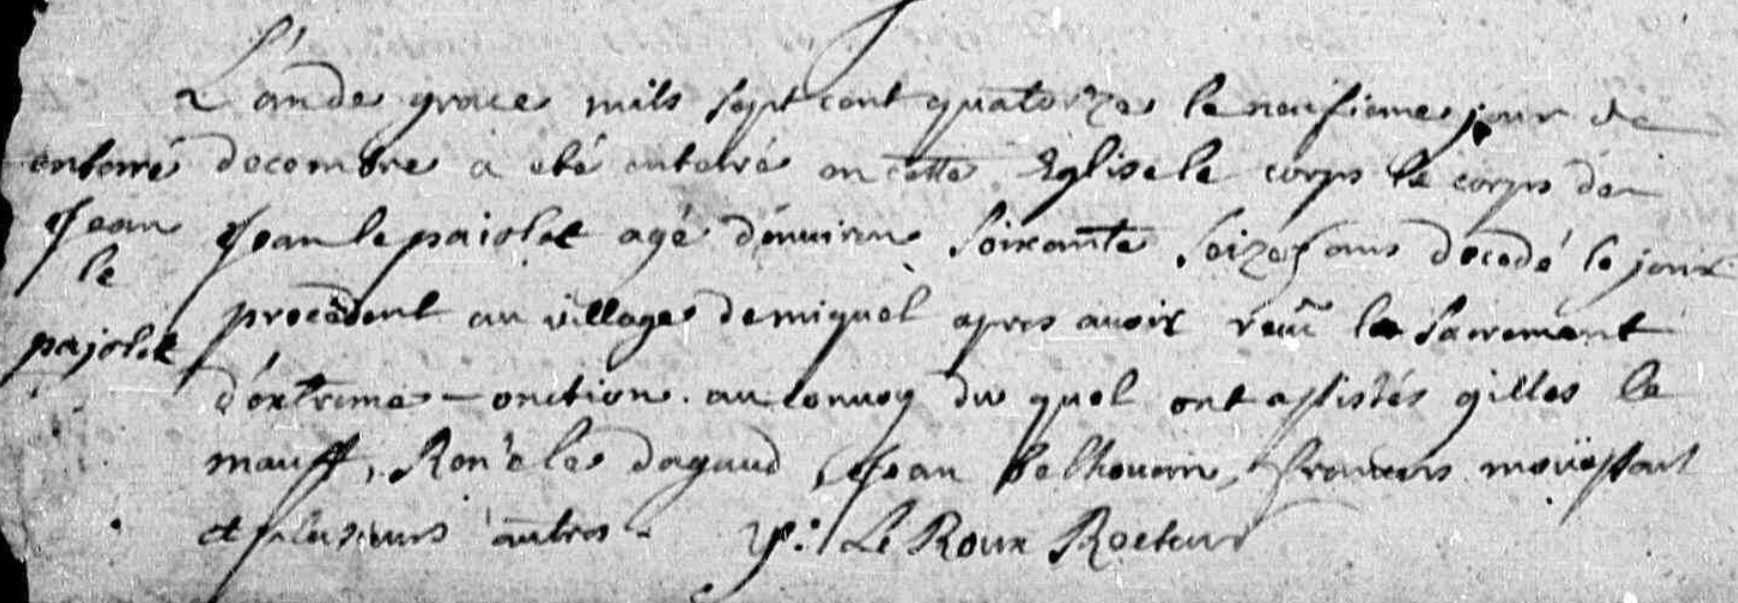 L'an de grace mils sept cent quatorze le neufieme jour de
enterré
decembre a eté enterré en cette Eglise le corps le corps de
Jean
Jean le pajolec agé d'enuiron soixante seize ans decedé le jour
le
precedent au village de miquel apres auoir receu le sacrement
pajolec
d'extreme-onction. au conuoy du quel ont assistés gilles le
mauff, René le dagaud, Jean belhouarn, francois
et plusieurs autres. y: Le Roux Recteur